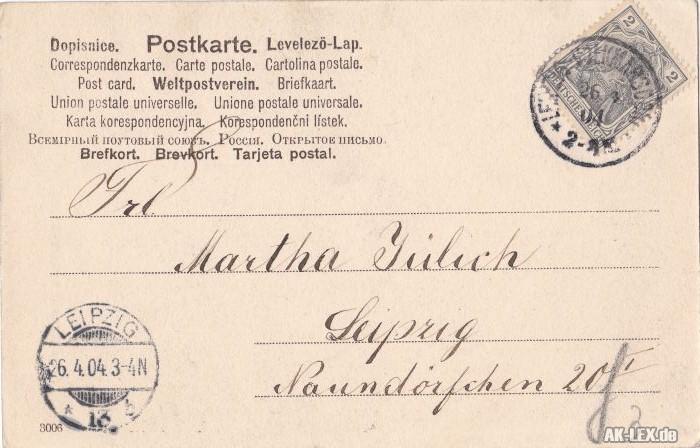 Dopisnice. Postkarte. Levelezö-Lap.
Correspondenzkarte. Carte postale. Cartolina postale.
Post card. Weltpostverein. Briefkaart.
Union postale universelle. Unione postale universale.
Karta korespondencyjna. Korespondenční lístek.
Всемірный почтовый союзъ. Россія. Открытое письмо.
Brefkort. Brevkort. Tarjeta postal.
2
2
DEUTSCHES REICH
26. 4.
04
2-3N
Frl.
Martha Jülich
Leipzig
Naundörfchen 20
LEIPZIG
26. 4. 04. 3-4N
* 13 b
3006
AK-LEX.de